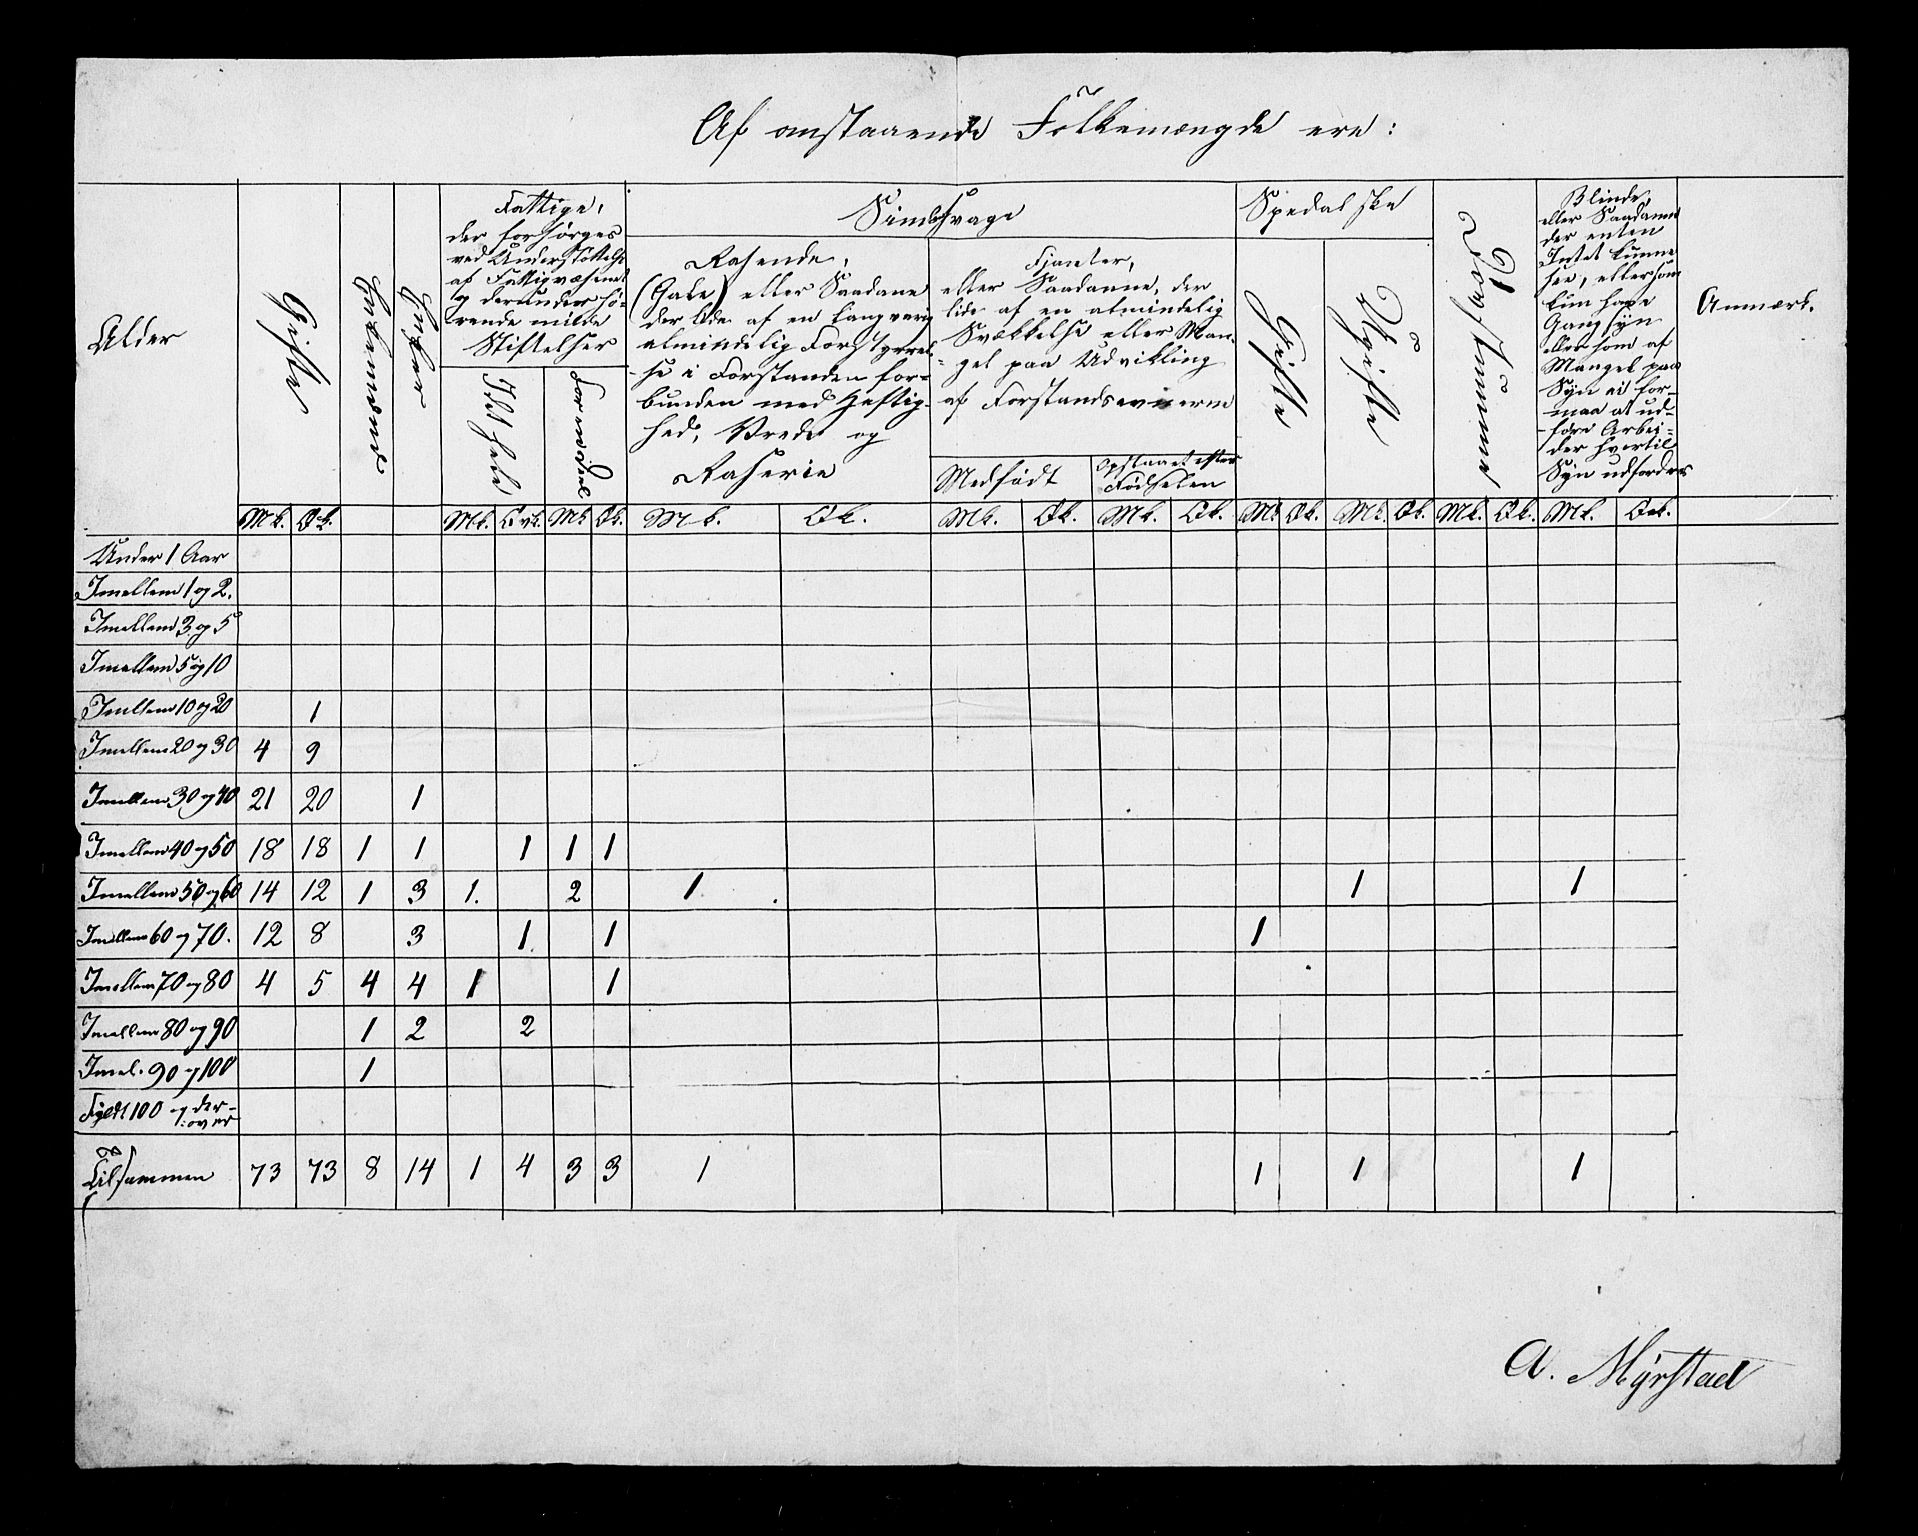 Af anstaaende Folkemængde ere:
Alder
Gifte
Enkemænd
Enker
Fattige,
der forsørges
ved Understøttelse
af Fattigvæsenet
og derunder hø-
rende milde
Stiftelser
For hele
For en Deel
Sindssvage
Rasende,
(Gale) eller Saadane
der lide af en langvarig
almindelig Forstyrrel-
se i Forstanden for-
bunden med Heftig-
hed, Vrede og
Raserie
Fjanter,
eller Saadanne, der
lide af en almindelig
Svækkelse eller Man-
gel paa Udvikling
af Forstandsevnerne
Medfødt
Opstaaet efter
Fødselen
Spedalske
Gifte
Ugifte
Døvstumme
Blinde,
eller Saadanne
der enten
Intet kunne
see, eller som
kun have
Gangsyn
eller som af
Mangel paa
Syn ei for-
maa at ud-
føre Arbei-
der hvortil
Syn udfordres
Anmærk.
Mk. Qk. Mk. Qvk. Mk Qk. Mk. Qk. Mk. Qk. Mk. Qk. Mk Qk. Mk. Qk. Mk. Qk. Mk. Qvk.
Under 1 Aar
Imellem 1 og 2.
Imellem 3 og 5
Imellem 5 og 10
Imellem 10 og 20 1
Imellem 20 og 30 4 9
Imellem 30 og 40 21 20 1
Imellem 40 og 50 18 18 1 1 1 1 1
Imellem 50 og 60 14 12 1 3 1. 2 1. 1 1
Imellem 60 og 70. 12 8 3 1 1 1
Imellem 70 og 80 4 5 4 4 1 1
Imellem 80 og 90 1 2 2
Imel. 90 og 100 1
Fyldt 100 og der-
over
Tilsammen 73 73 8 14 1 4 3 3 1 1 1 1
A. Myrstad